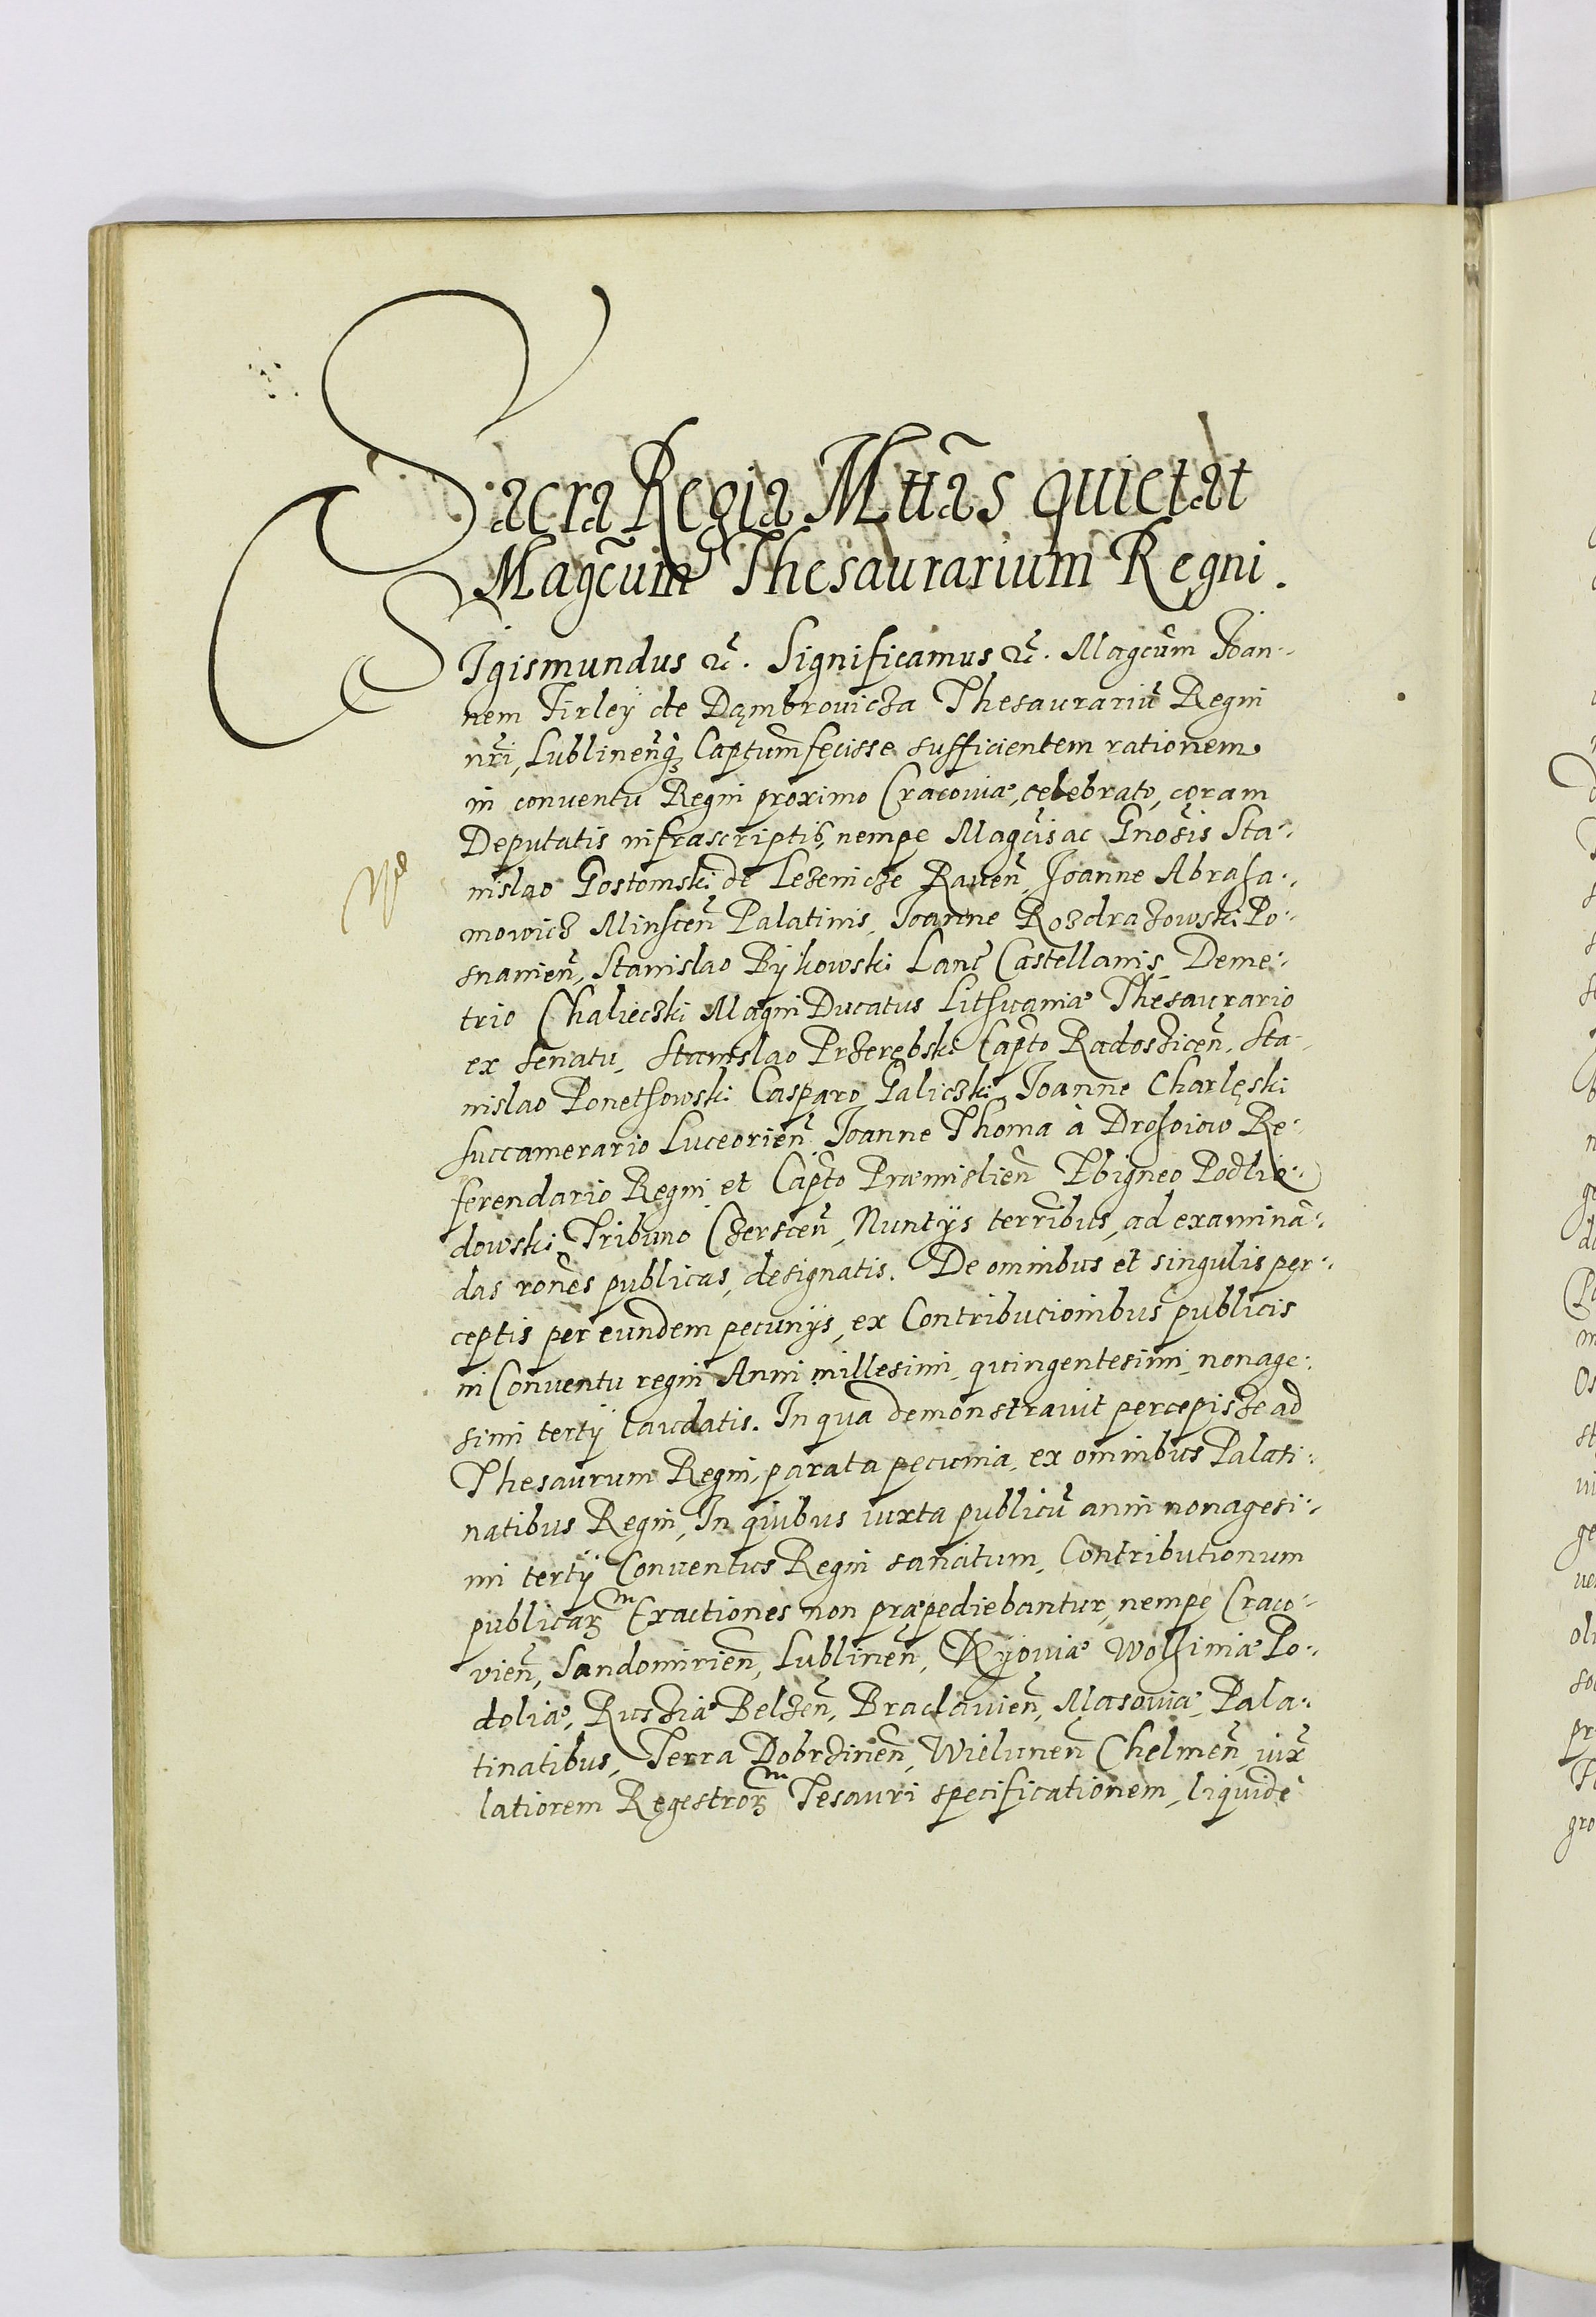 Sacra Regia Mttãs quietat
Magc̃um Thesaurarium Regni.
SIgismundus &c̃. Significamus &c̃. Magcũm Ioan-
nem Firleÿ de Dąmbrouicza Thesaurariũ Regni
nr̃i, Lublinen̄q3 Captum̃ fecisse sufficientem rationem
in conuentu Regni proximo Cracouiæ, celebrato, coram
Deputatis infrascriptis, nempe Magcĩs ac Gnosĩs Sta-
nislao Gostomski de Lezenicze Rauen̄, Joanne Abraha-
mowicz Minscen̄ Palatinis, Joanne Rozdrazowski Po-
snanien̄, Stanislao Bÿkowski Lanc̃ Castellanis, Deme-
trio Chalieczki Magni Ducatus Lithuaniæ Thesaurario
ex senatu, Stanislao Przerębski Capt̃o Radoszicen̄, Sta-
nislao Ponethowski Casparo Galiczki, Joanne Charlęski
succamerario Luceorien̄ Joanne Thoma à Drohoiow Re-
ferendario Regni et Capt̃o Præmislien̄ Zbigneo Podlio-
dowski Tribuno Czerscen̄, Nuntÿs terrĩbus, ad examinã-
das ron̄es publicas, designatis. De omnibus et singulis per-
ceptis per eundem pecunÿs, ex Contribucionibus publicis
in Conuentu regni Anni millesimi, quingentesimi, nonage-
simi tertÿ laudatis. In qua demonstrauit percepisze ad
Thesaurum Regni, parata pecunia, ex omnibus Palati-
natibus Regni, In quibus iuxta publicũ anni nonagesi-
mi tertÿ Conuentus Regni sancitum, Contributionum
publicar3m Exactiones non præpediebantur, nempe Craco-
vien̄, Sandomirien̄, Lublinen̄, Kÿouiæ Wolhiniæ Po-
doliæ, Rusziæ Belzen̄, Braclauien̄, Masouiæ, Pala-
tinatibus, Terra Dobrzinen̄, Wielunen̄ Chelmen̄, iux̃
latiorem Regestror3m Tesauri specificationem, liquidè